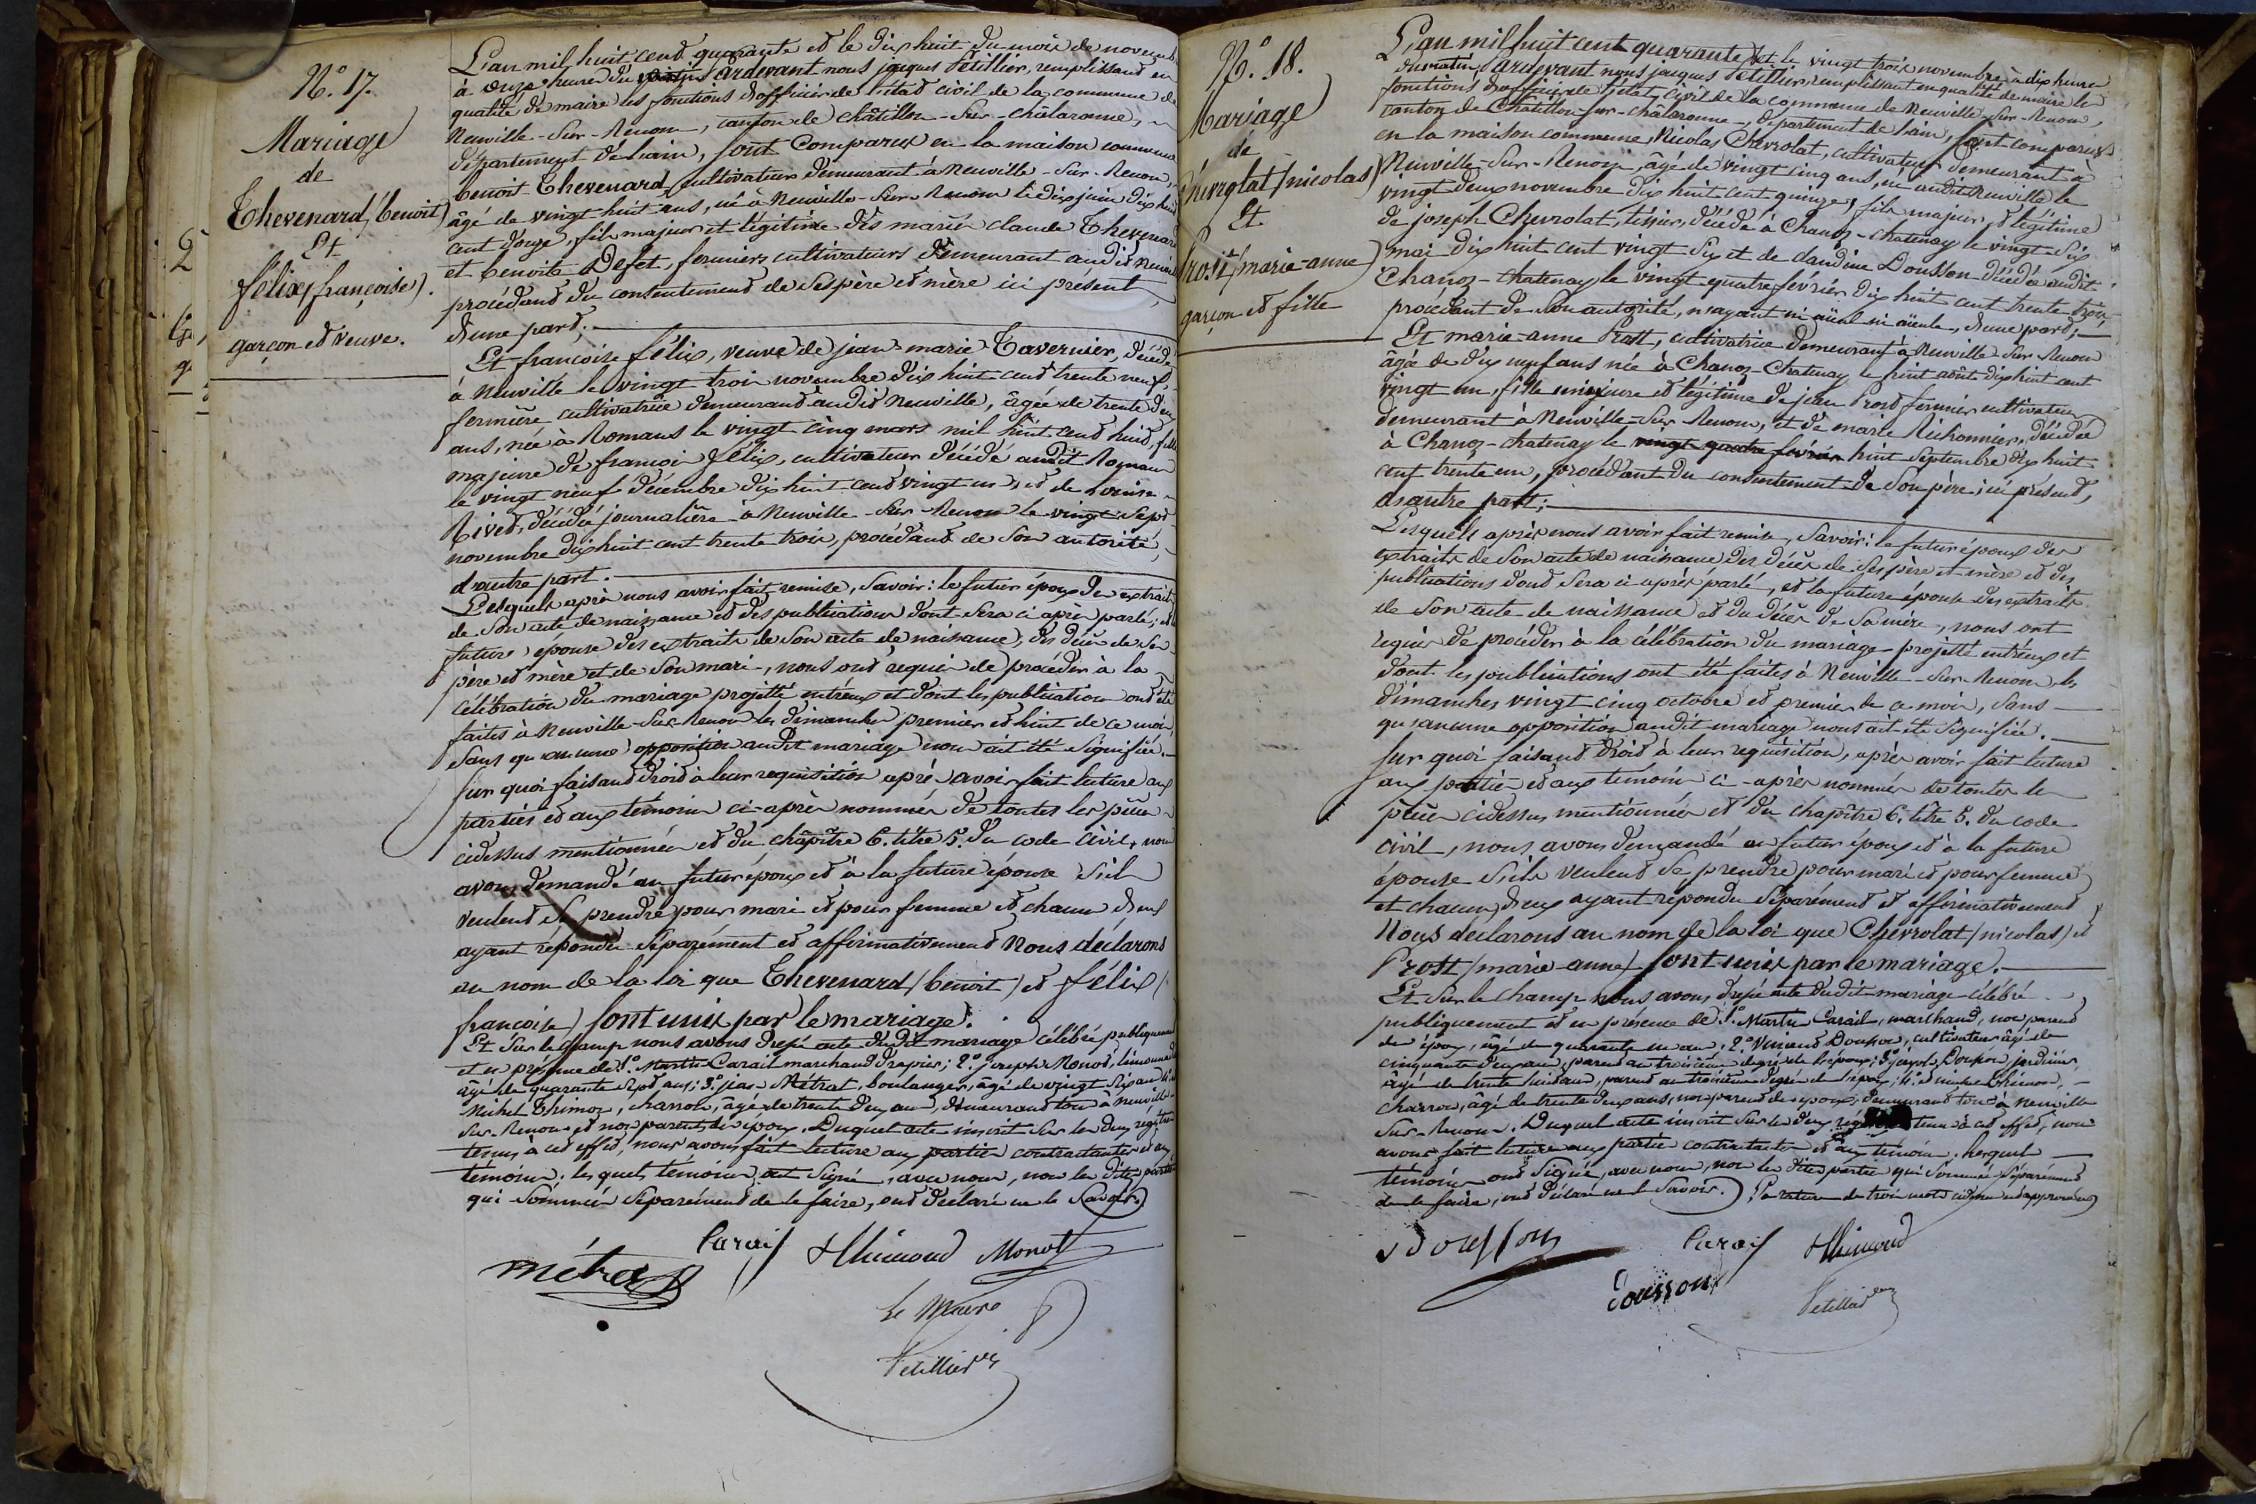 N.° 17.
Mariage
de
Thevenard (benoit)
Et
félix (françoise).
garçon et veuve.
L'an mil huit cent quarante et le dix huit du mois de novembre
à onze heures du matin pardevant nous jacques Pétillier, remplissant en
qualité de maire les fonctions d'officier de l'état civil de la commune de
Neuville-Sur-Renom, canton de châtillon-Sur-châlaronne,
département de l'ain, sont comparus en la maison commune
benoit Thevenard cultivateur demeurant à Neuville-Sur-Renom,
âgé de vingt huit ans, né à Neuville-Sur-Renom le dix juin dix huit
cent douze, fils majeur et légitime des mariés claude Thevenard
et benoite Defet, fermiers cultivateurs demeurant audit Neuville
procédant du consentement de ses père et mère ici présent,
d'une part;
Et françoise félix, veuve de jean-marie Tavernier, décédé
à Neuville le vingt trois novembre dix huit cent trente neuf
fermière cultivatrice demeurant audit Neuville, âgée de trente deux
ans, née à Romans le vingt cinq mars mil huit cent huit, fille
majeure de françois félix, cultivateur décédé audit Romans
le vingt neuf décembre dix huit cent vingt un, et de Louise
Rivet, décédée journalière à Neuville-Sur-Renom le vingt sept
novembre dix huit cent trente trois, procédant de son autorité,
d'autre part.
Lesquels après nous avoir fait remise, Savoir: le futur époux de extraits
de Son acte de naissance et des publications dont Sera ci après parlé; et la
future épouse des extraits de Son acte de naissance, des décès de ses
père et mère et de Son mari, nous ont requis de procéder à la
célébration du mariage projetté entr'eux et dont les publications ont été
faites à Neuville-Sur-Renom les dimanches premier et huit de ce mois,
Sans qu'aucune opposition audit mariage nous ait été Signifiée.
Sur quoi faisant droit à leur requisition après avoir fait lecture aux
parties et aux témoins ci-après nommés de toutes les pièces
cidessus mentionnées et du chapitre 6. titre 5. du code civil, nous
avons demandé au futur époux et à la future épouse S'ils
veulent Se prendre pour mari et pour femme et chacun d'eux
ayant répondu Séparément et affirmativement Nous déclarons
au nom de la loi que Thevenard (benoit) et félix (
françoise) Sont unis par le mariage.
Et Sur le champ nous avons dressé acte dudit mariage célébré publiquement
et en présence de 1.° Martin Carail marchand drapier; 2.° joseph Monot, limonadier
âgé de quarante sept ans; 3.° jean Métrat, boulanger, âgé de vingt six ans
Michel Thimon, charron, âgé de trente deux ans, demeurant tous à Neuville
Sur-Renom et non parents des époux. Duquel acte inscrit Sur les deux régistres
tenus à cet effet, nous avons fait lecture aux parties contractantes et aux
témoins; les quels témoins ont Signé, avec nous, non les dites parties
qui Sommées Séparément de le faire, ont déclaré ne le Savoir.
Carail Thimond Monot
métrat
Le Maire
Petillier
N.° 18.
Mariage
de
Chevrolat (nicolas)
Et
Prost (marie-anne)
garçon et fille
L'an mil huit cent quarante et le vingt trois novembre à dix heures
du matin, Pardevant nous jacques Pétillier, remplissant en qualité de maire les
fonctions d'officier de l'état civil de la commune de Neuville-Sur-Renom,
canton de Châtillon-Sur-châlaronne, département de l'ain, Sont comparus
en la maison commune, Nicolas Chevrolat, cultivateur demeurant à
Neuville-Sur-Renom, âgé de vingt cinq ans, né audit Neuville le
vingt deux novembre dix huit cent quinze, fils majeur, et légitime
de joseph Chevrolat, tissier, décédé à Chanoz-chatenay le vingt-Six
mai dix huit cent vingt Six et de claudine Dousson décédée audit
Chanoz-chatenay le vingt-quatre février dix huit cent trente
procédant de Son autorité, n'ayant ni aïeul ni aïeule, d'une part;
Et marie-anne Prost, cultivatrice demeurant à Neuville-Sur-Renom
âgée de dix neuf ans née à Chanoz-Chatenay le huit août dix huit cent
vingt un, fille mineure et légitime de jean Prost fermier cultivateur
demeurant à Neuville-Sur-Renom, et de marie Richonnier, décédée
à Chanoz-chatenay le vingt quatre février huit Septembre dix huit
cent trente un, procédant du consentement de Son père ici présent,
d'autre part;
Lesquels après nous avoir fait remise, Savoir: le futur époux des
extraits de Son acte de naissance des décès de Ses père et mère et des
publications dont Sera ci après parlé, et la future épouse des extraits
de Son acte de naissance et du décès de Sa mère, nous ont
requis de procéder à la célébration du mariage projetté entr'eux et
dont les publications ont été faites à Neuville-Sur-Renom les
dimanches vingt cinq octobre et premier de ce mois, Sans
qu'aucune opposition audit mariage nous ait été Signifiée.
Sur quoi faisant droit à leur requisition, après avoir fait lecture
aux parties et aux témoins ci-après nommés de toutes les
pièces cidessus mentionnées et du chapitre 6. titre 5. du code
civil, nous avons demandé au futur époux et à la future
épouse S'ils veulent Se prendre pour mari et pour femme
et chacun d'eux ayant répondu Séparément et affirmativement
Nous déclarons au nom de la loi que Chevrolat (nicolas) et
Prost (marie-anne) Sont unis par le mariage.
Et Sur le champ nous avons dressé acte dudit mariage célébré
publiquement et en présence de 1.° Martin Carail, marchand, non parent
des époux, âgé de quarante un ans, 2.° Vincent Dousson, cultivateur âgé de
cinquante deux ans, parent au troisième degré de l'époux; 3.° joseph Dousson, jardinier,
âgé de trente huit ans, parent au troisième degré de l'époux; 4.° et michel Thimon,
charron, âgé de trente deux ans, non parent des époux, demeurant tous à Neuville
Sur-Renom. Duquel acte inscrit Sur les deux tenus à cet effet, nous
avons fait lecture aux parties contractantes et aux témoins, lesquels
témoins ont Signé, avec nous, non les dites parties qui Sommées Séparément
de le faire, ont déclaré ne le Savoir. La rature de trois mots cidessus est approuvée
Dousson Carail Thimond
Dousson Petillier